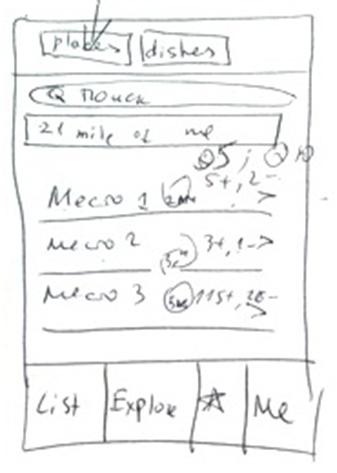 places dishes
Поиск
21 mile of me
5
Место 1 5+, 2-
Место 2 3+, 1-
Место 3 115+, 28-
List Explore ☆ Me